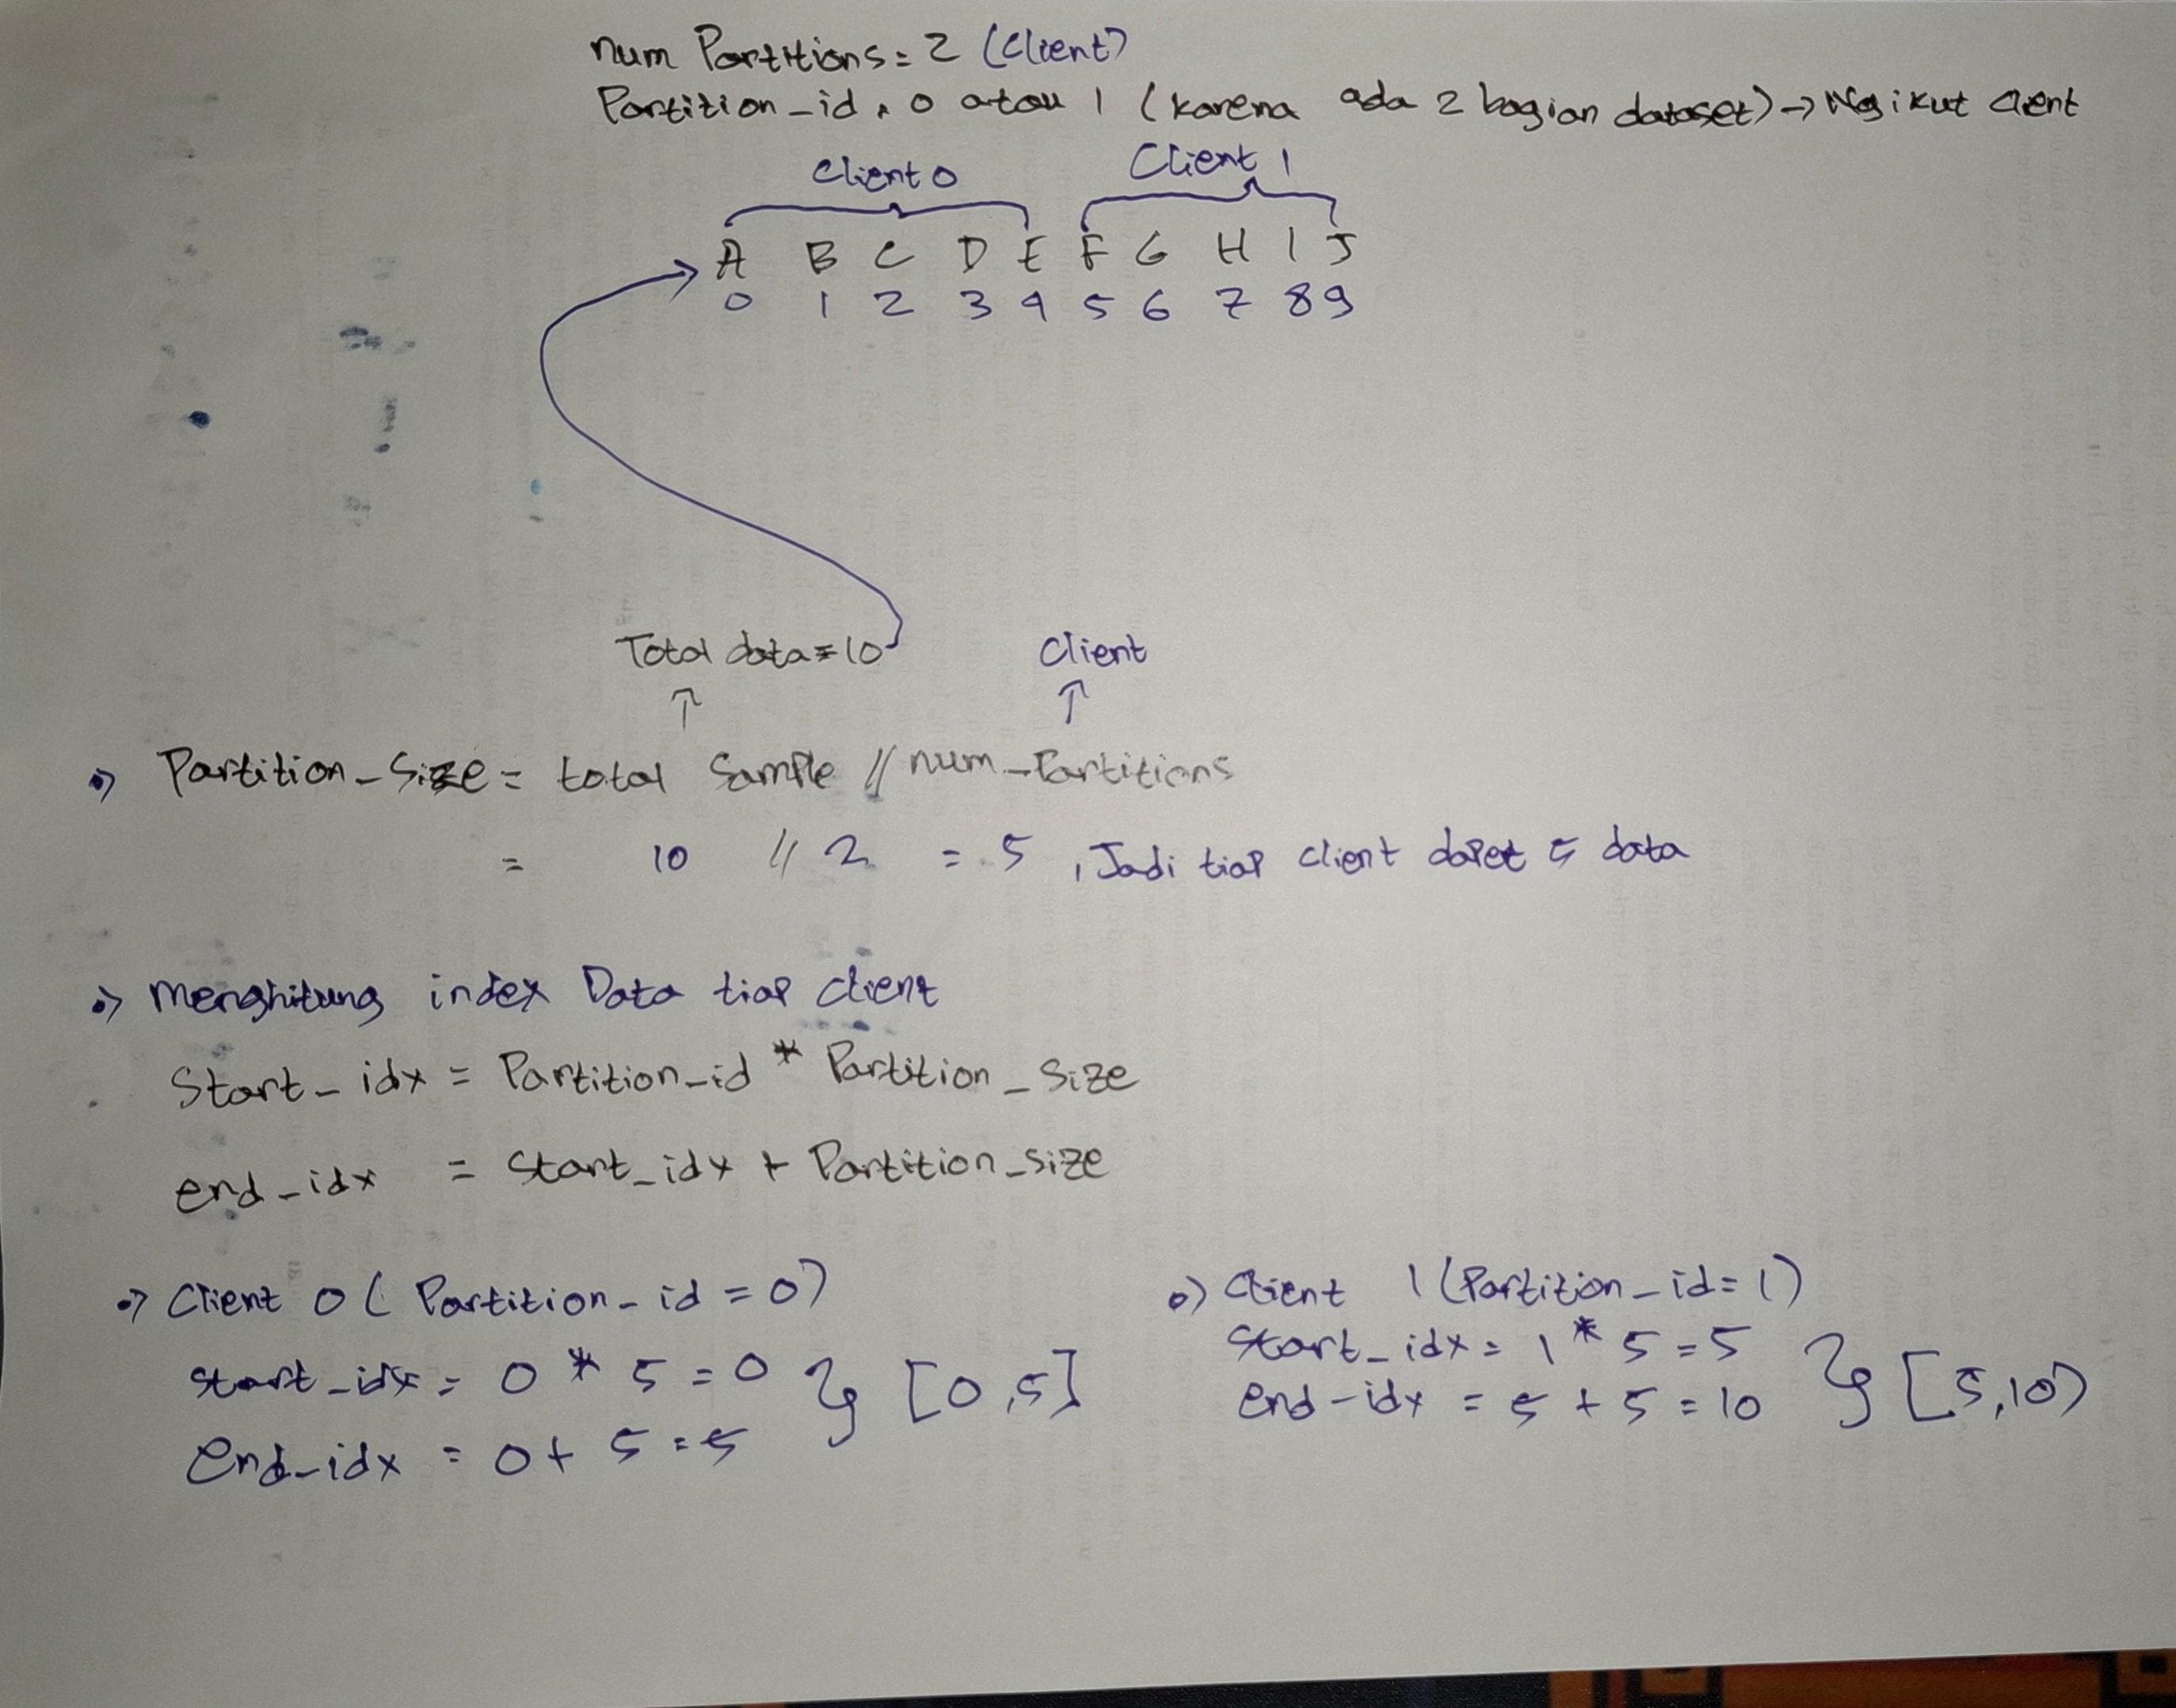 num Partitions = 2 (Client)
Partition_id = 0 atau 1 (karena ada 2 bagian dataset) → Ngikut client
Client 0 Client 1
A B C D E F G H I J
0 1 2 3 4 5 6 7 8 9
Total data = 10 Client
↑ ↑
Partition_Size = total Sample // num_Partitions
= 10 // 2 = 5 , Jadi tiap client dapet 5 data
Menghitung index Data tiap client
Start_idx = Partition_id * Partition_Size
end_idx = Start_idx + Partition_size
Client 0 ( Partition_id = 0)
start_idx = 0 * 5 = 0 } [0,5]
End_idx = 0 + 5 = 5
Client 1 (Partition_id = 1)
Start_idx = 1 * 5 = 5 } [5,10)
End_idx = 5 + 5 = 10